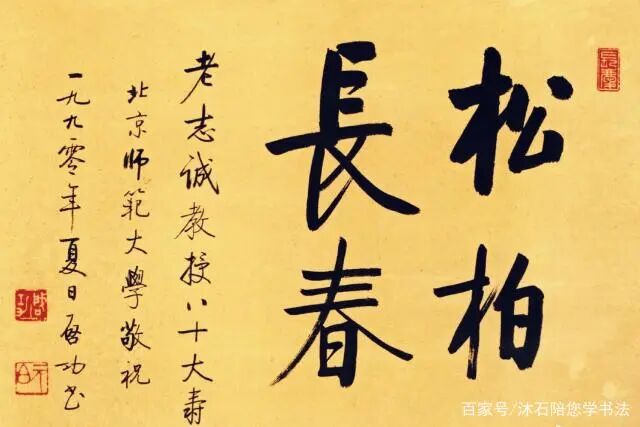 松柏
長春
老志诚教授八十大寿
北京师範大學敬祝
一九九零年夏日启功书
百家号/沐石陪您学书法